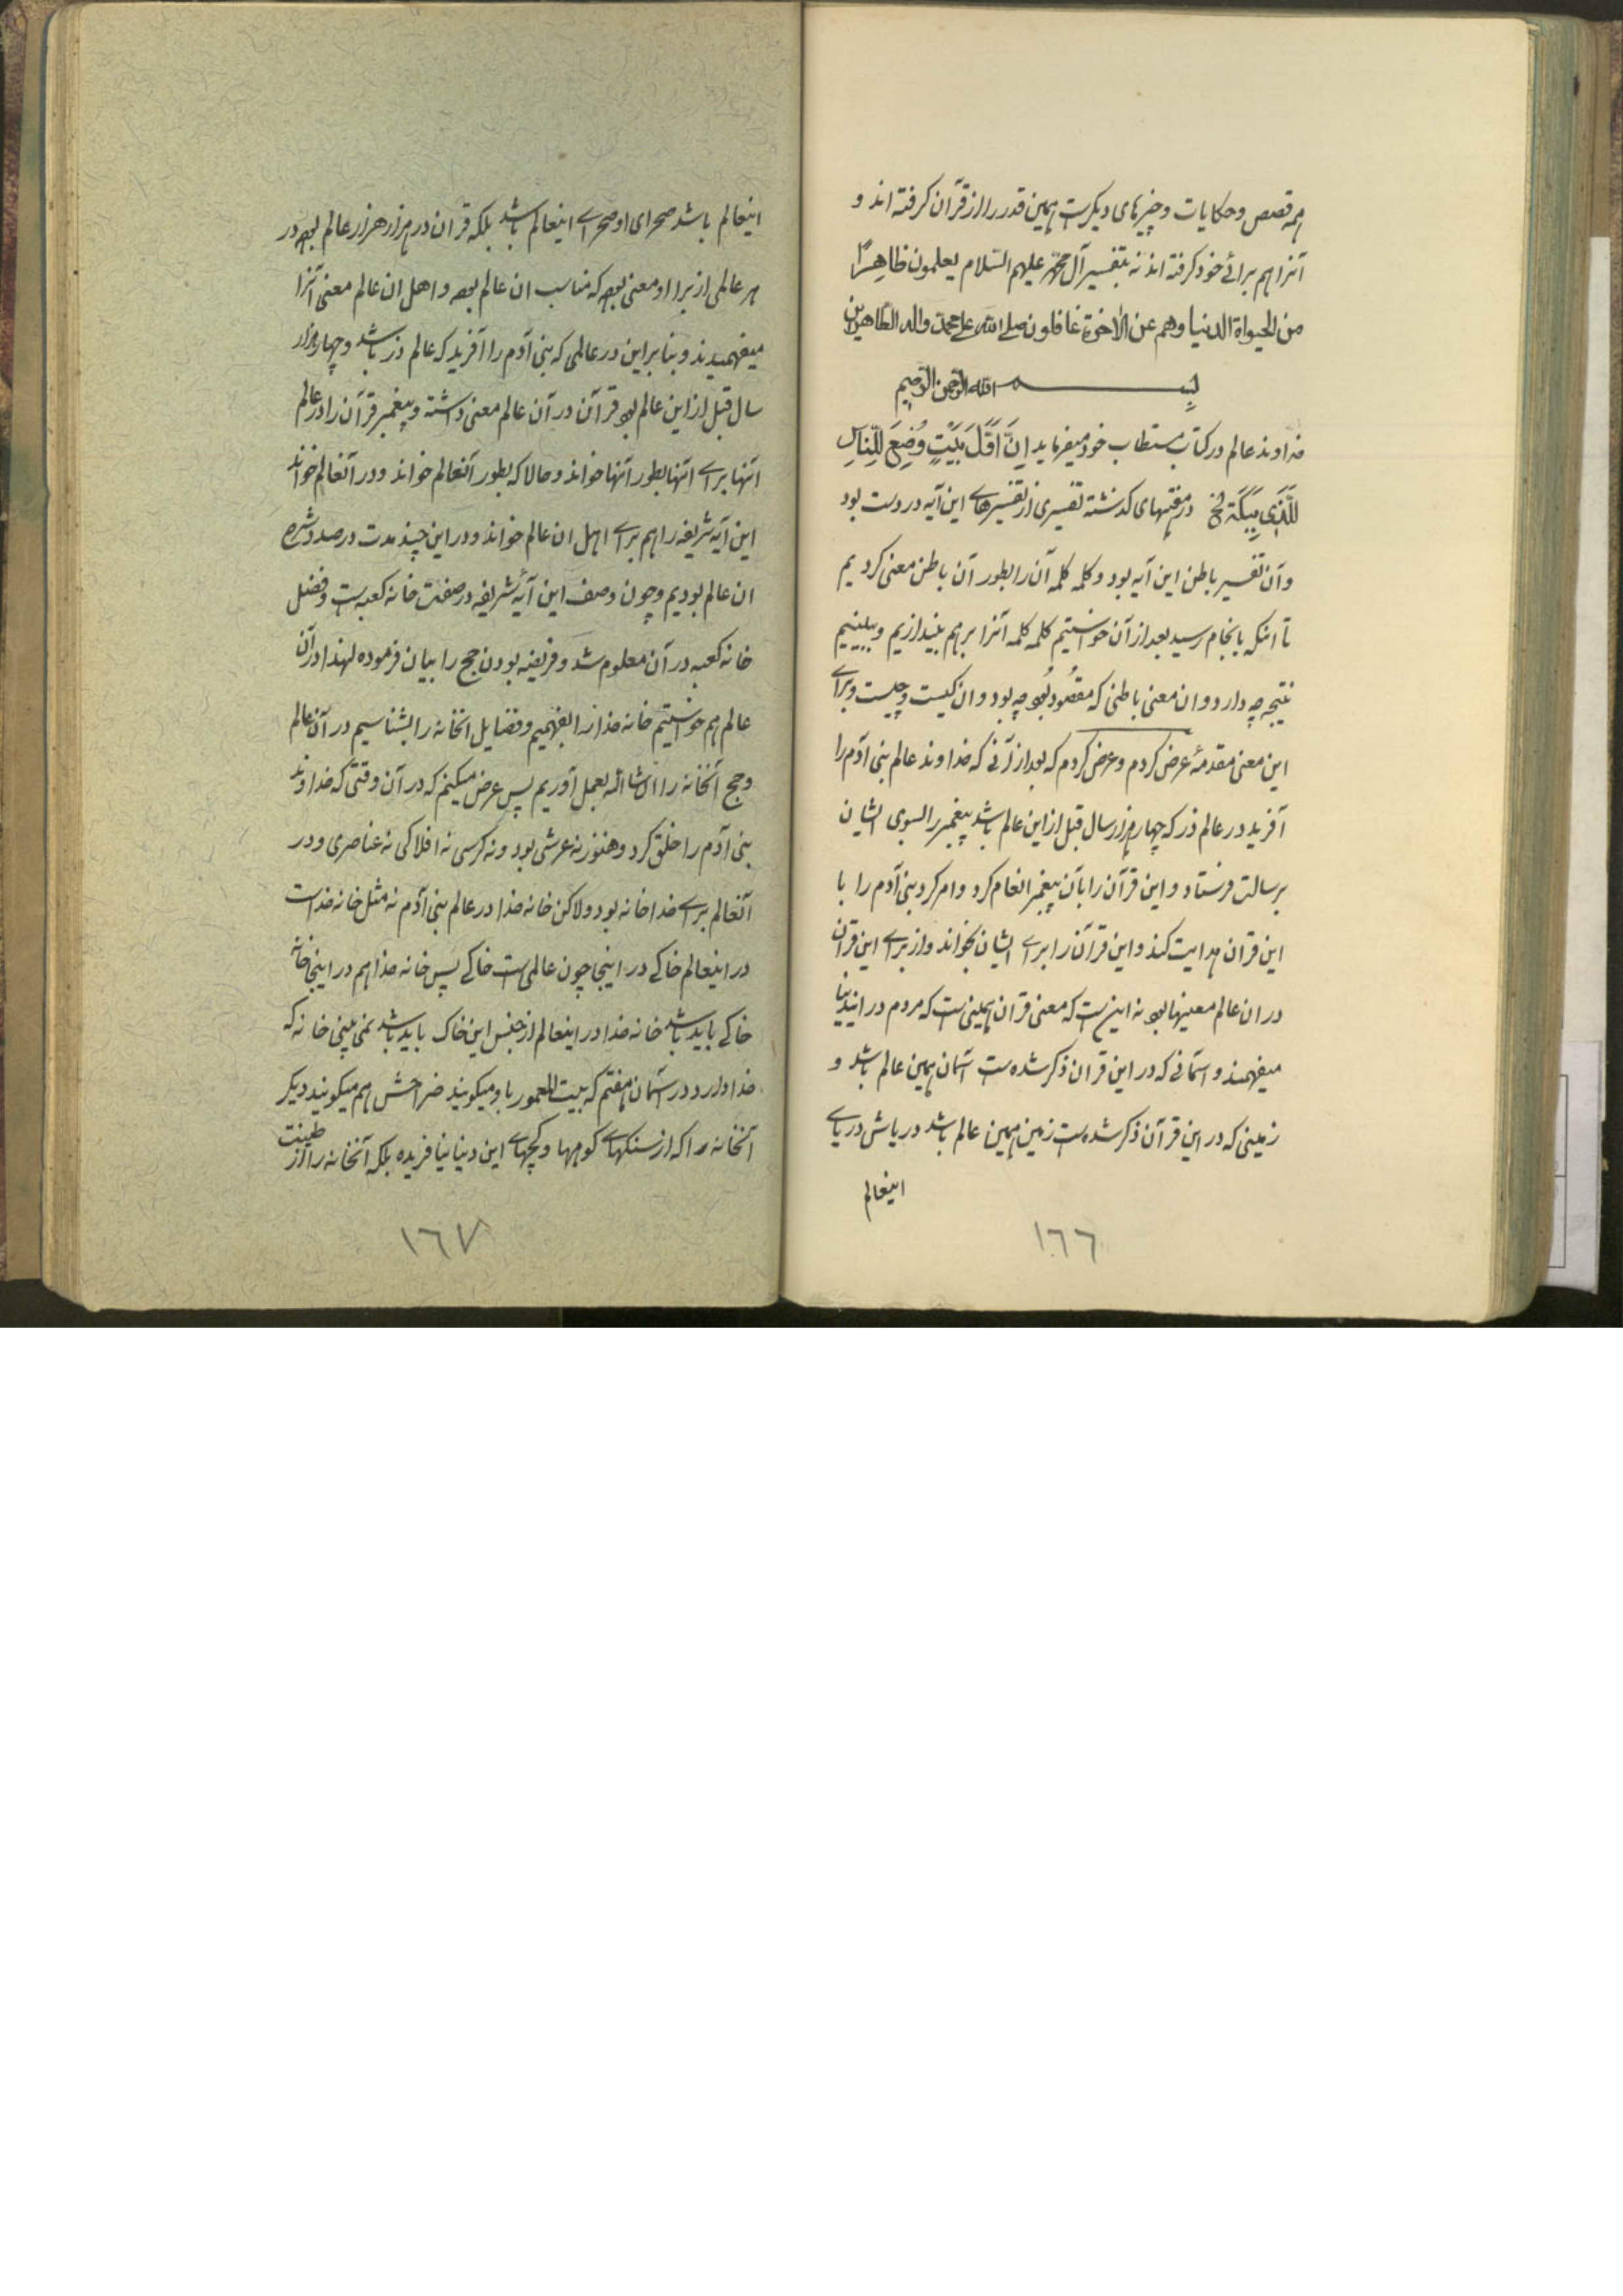 همه قصص و حکایات و چیزهای دیگرست همین قدر را از قرآن گرفته اند و
آنرا هم برائے خود گرفته اند نه بتفسیر آل محمد علیهم السلام یعلمون ظاهرًا
من الحیواة الدنیا وهم عن الاخرة غافلون صلی الله علی محمد واله الطاهرین
بسم الله الرحمن الرحیم
خداوند عالم در کتاب مستطاب خود میفرماید اِنَّ اَوَّلَ بَیْتٍ وُضِعَ لِلنّاسِ
لَلَّذی بِبَکَّةَ الخ در هفتهای گذشته تفسیری از تفسیرهاے این آیه در دست بود
و آن تفسیر باطن این آیه بود و کلمه کلمه آن را بطور آن باطن معنی کردیم
تا اینکه بانجام رسید بعد از آن خواستیم کلمه کلمه آنرا برهم بیندازیم و ببینیم
نتیجه چه دارد و ان معنی باطنی که مقصُود بُود چه بود و ان کیست و چیست و براے
این معنی مقدمهٔ عرض کردم و عرض کردم که بعد از آنی که خداوند عالم بنی آدم را
آفرید در عالم ذر که چهار هزار سال قبل از این عالم باشد پیغمبر را بسوی ایشان
برسالت فرستاد و این قرآن را بآن پیغمبر انعام کرد و امر کرد بنی آدم را با
این قرآن هدایت کند و این قرآن را براے ایشان بخواند و از براے این قرآن
در ان عالم معنیها بود نه اینست که معنی قرآن همینی ست که مردم در ایندنیا
میفهمند و آسمانی که در این قرآن ذکر شده ست آسمان همین عالم باشد و
زمینی که در این قرآن ذکر شده ست زمین همین عالم باشد دریاش دریاے
اینعالم
١٦٦
اینعالم باشد صحرای او صحراے اینعالم باشد بلکه قرآن در هزار هزار عالم بود در
هر عالمی از برا او معنی بود که مناسب ان عالم بود و اهل ان عالم معنی آنرا
میفهمیدند و بنا براین در عالمی که بنی آدم را آفرید که عالم ذر باشد و چهار هزار
سال قبل از این عالم بود قرآن در آن عالم معنی داشته و پیغمبر قرآن را در عالم
آنها براے آنها بطور آنها خواند و حالا که بطور آنعالم خواند و در آنعالم خواند
این آیه شریفه را هم براے اهل ان عالم خواند و در این چند مدت در صدد شرح
ان عالم بودیم و چون وصف این آیهٔ شریفه در صفت خانه کعبه ست و فضل
خانه کعبه در آن معلوم شد و فریضه بودن حج را بیان فرموده لهذا در آن
عالم هم خواستیم خانه خدا را بفهمیم و فضایل انخانه را بشناسیم در آن عالم
و حج آنخانه را انشاالله بعمل آوریم پس عرض میکنم که در آن وقتی که خداوند
بنی آدم را خلق کرد و هنوز نه عرشی بود و نه کرسی نه افلاکی نه عناصری و در
آنعالم براے خدا خانه بود و لاکن خانه خدا در عالم بنی آدم نه مثل خانه خداست
در اینعالم خاکے در اینجا چون عالمی ست خاکے پس خانه خدا هم در اینجا خانه
خاکے باید باشد خانه خدا در اینعالم از جنس این خاک باید باشد نمی بینی خانه که
خدا دارد در آسمان هفتم که بیت المعمور باو میگویند ضراحش هم میگویند دیگر
آنخانه را که از سنگهاے کوهها و گچهاے این دنیا نیافریده بلکه آنخانه را از طینت
١٦٧